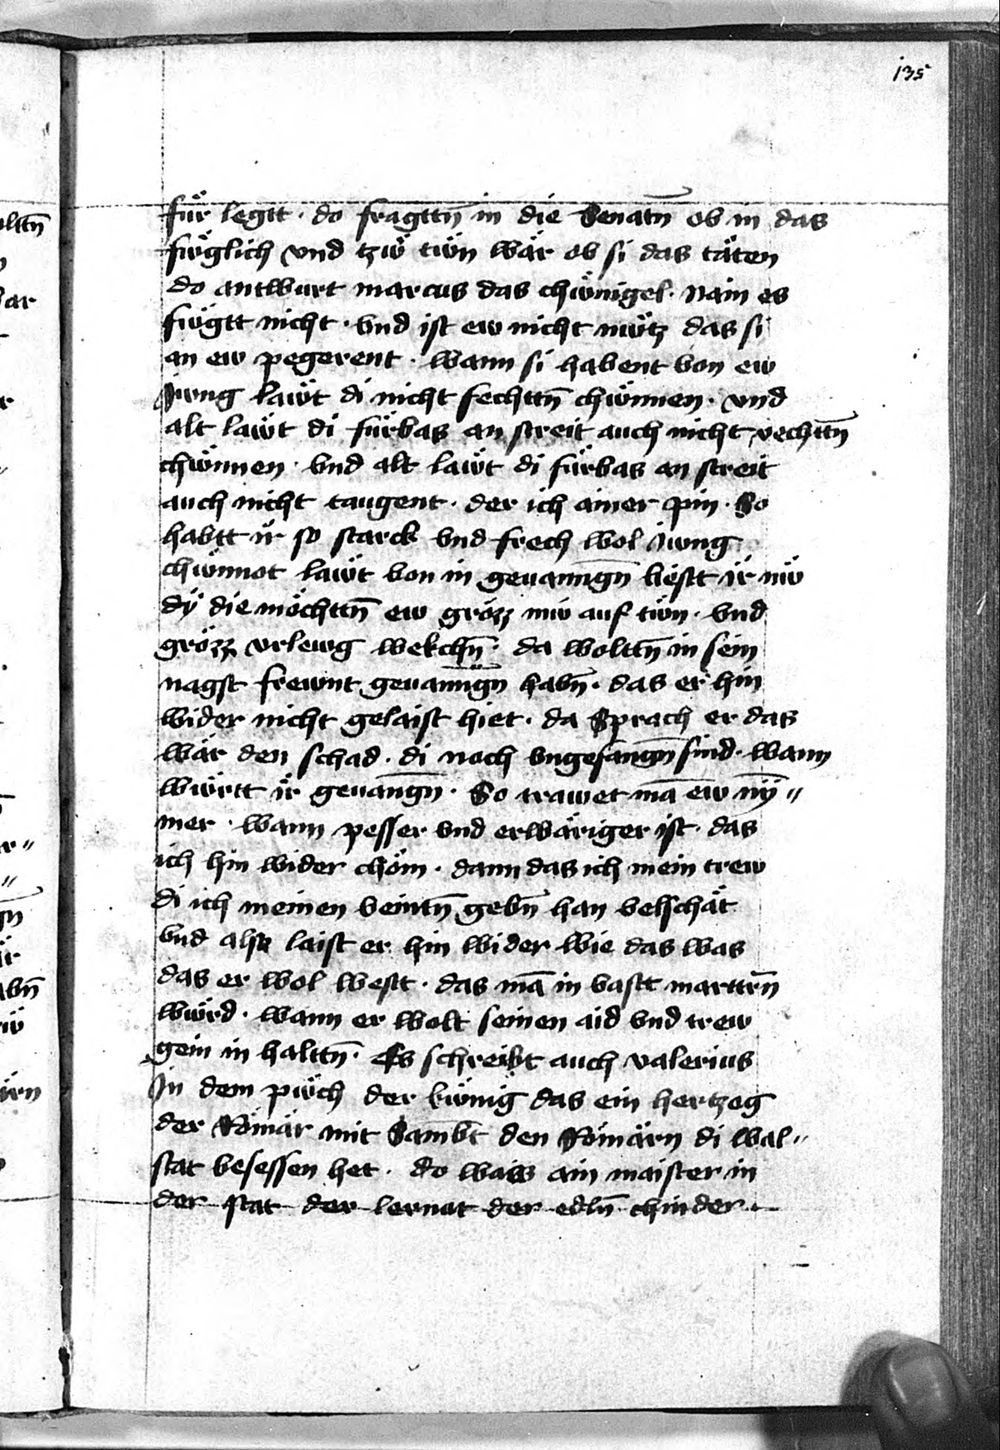 135
für legtt · do fragttn̄ in die Senatn̄ ob in das
fẅglich vnd tzẅ tẅn wär ob si das täten
do antwurt marcus das chẅnigel · Nain es
fẅgtt nicht · vnd ist ew nicht nẅtz das si
an ew pegerent · wann si habent von ew
Jwng lawt di nicht fechttn̄ chẅnnen · vnd
alt lawt di fürbas an streit auch nicht vechttn̄
chẅnnen · vnd alt lawt di fürbas an streit
auch nicht taugent · der ich ainer pin · So
habtt ir so starck vnd frech wol Jwng
chẅnnot lawt von in geuanngn̄ liestt ir nẅ
dÿ die möchttn̄ ew grözz mẅ auf tẅn · vnd
grözz vrlewg wekchn̄ · da woltn̄ in sein
nagst frewnt geuanngn̄ habn̄ · das er hin
wider nicht gelaist hiet · da Sprach er das
wär den schad · di noch vngefangn̄ sind · wann
wẅrtt ir geuangn̄ · So trawet mā ew nȳ〃
mer · wann pesser vnd erwäriger ist · das
ich hin wider chöm · dann das ich mein trew
di ich meinen veintn̄ gebn̄ han velschät
vnd also laist er hin wider wie das was
das er wol westt · das mā in vastt marttrn̄
wurd · wann er wolt seinen aid vnd trew
gein in halttn̄ · Es schreibt auch valerius
Jn dem pẅch der kẅnig das ein hertzog
der Römär mit Sambt den Römärn di wal〃
stat besessen het · do was ain maister in
der stat der lernat der edln̄ chinder